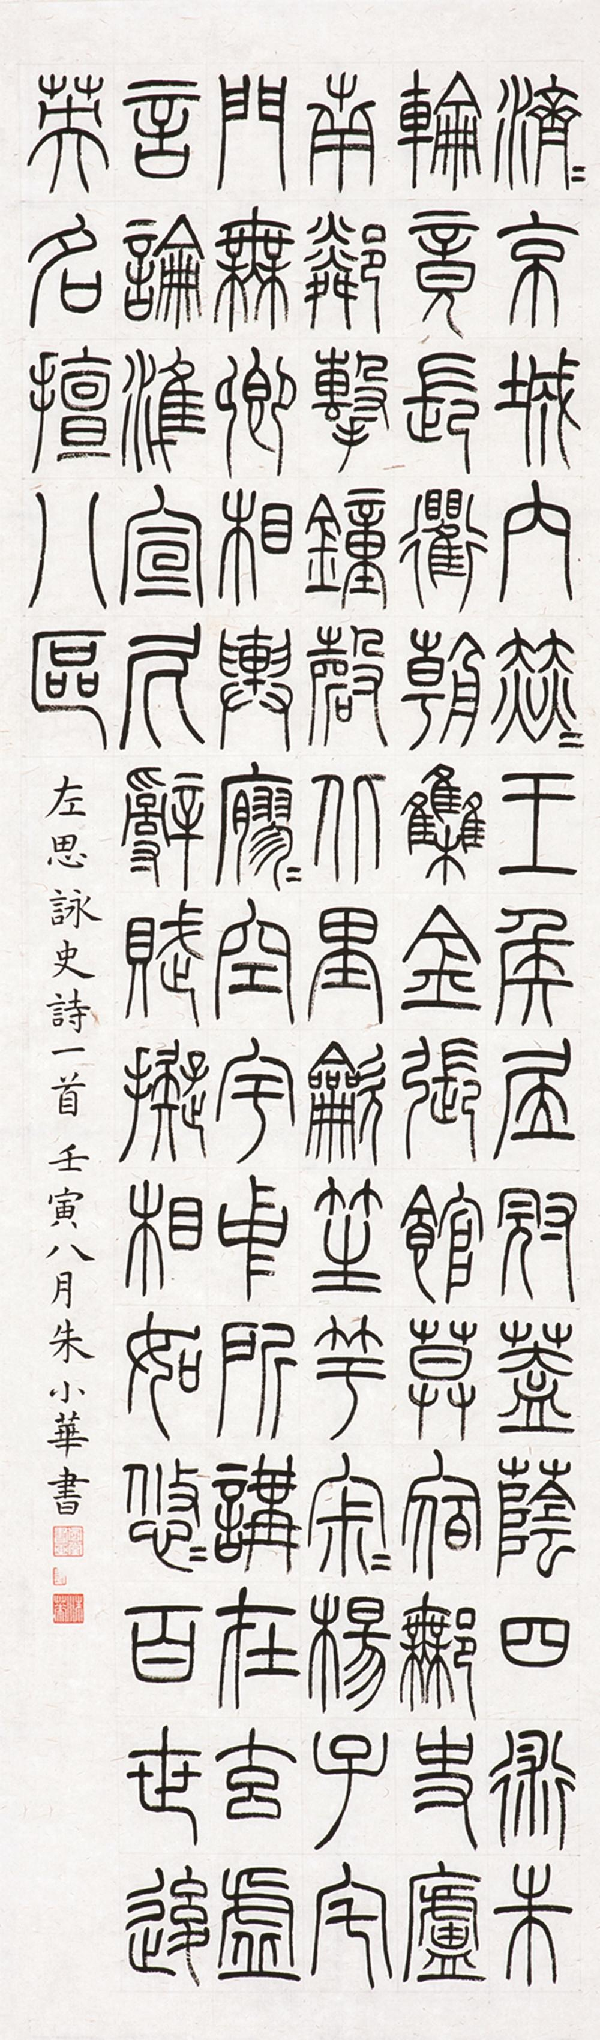 濟〻京城內赫〻王侯居冠蓋蔭四術朱
輪竟長衢朝雧金張館莫宿鄦史廬
南鄰擊鐘磬北里龡笙竽寂〻楊子宅
門無卿相輿廖〻空宇中所講在玄虛
言論準宣尼辭賦擬相如悠〻百世後
英名擅八區
左思詠史詩一首 壬寅八月朱小華書